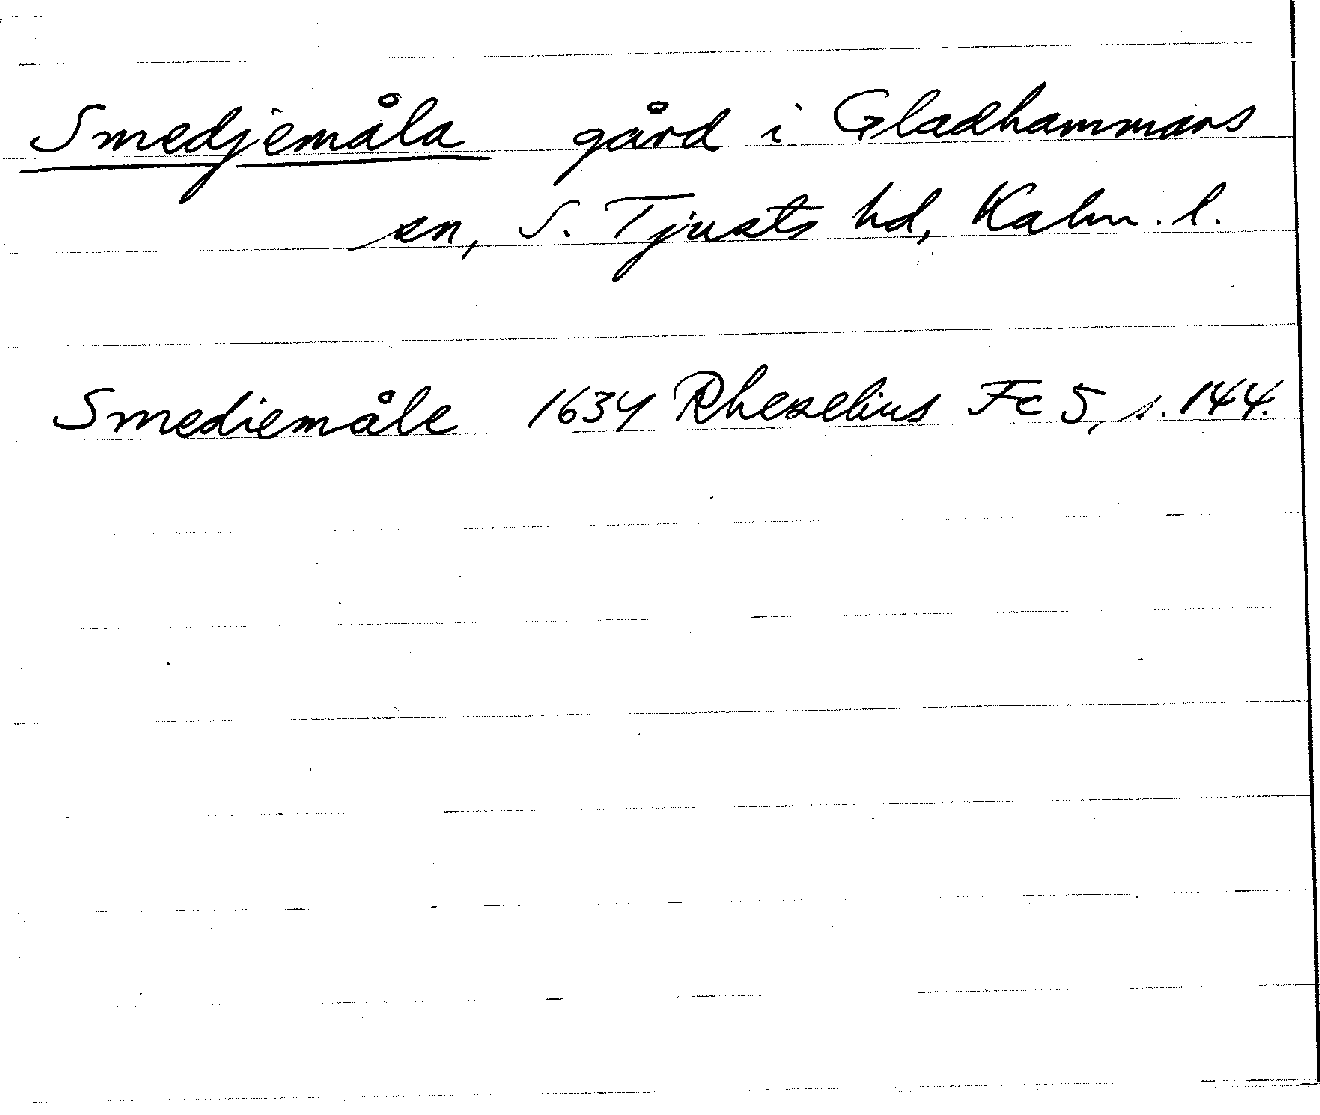 Smedjemåla gård i Gladhammars
sn, S. Tjusts hd, Kalm. l.
Smediemåle 1634 Rhezelius Fc 5, s. 144.